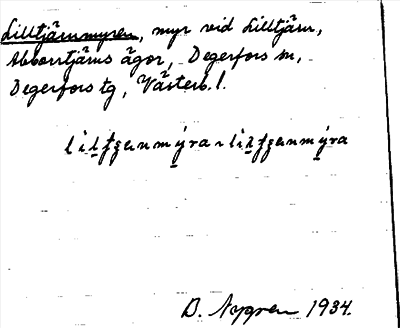 Lilltjärnmyren, myr vid Lilltjärn,
Abborrtjärns ägor, Degerfors sn,
Degerfors tg, Västerb. l.
B. Nygren 1934.